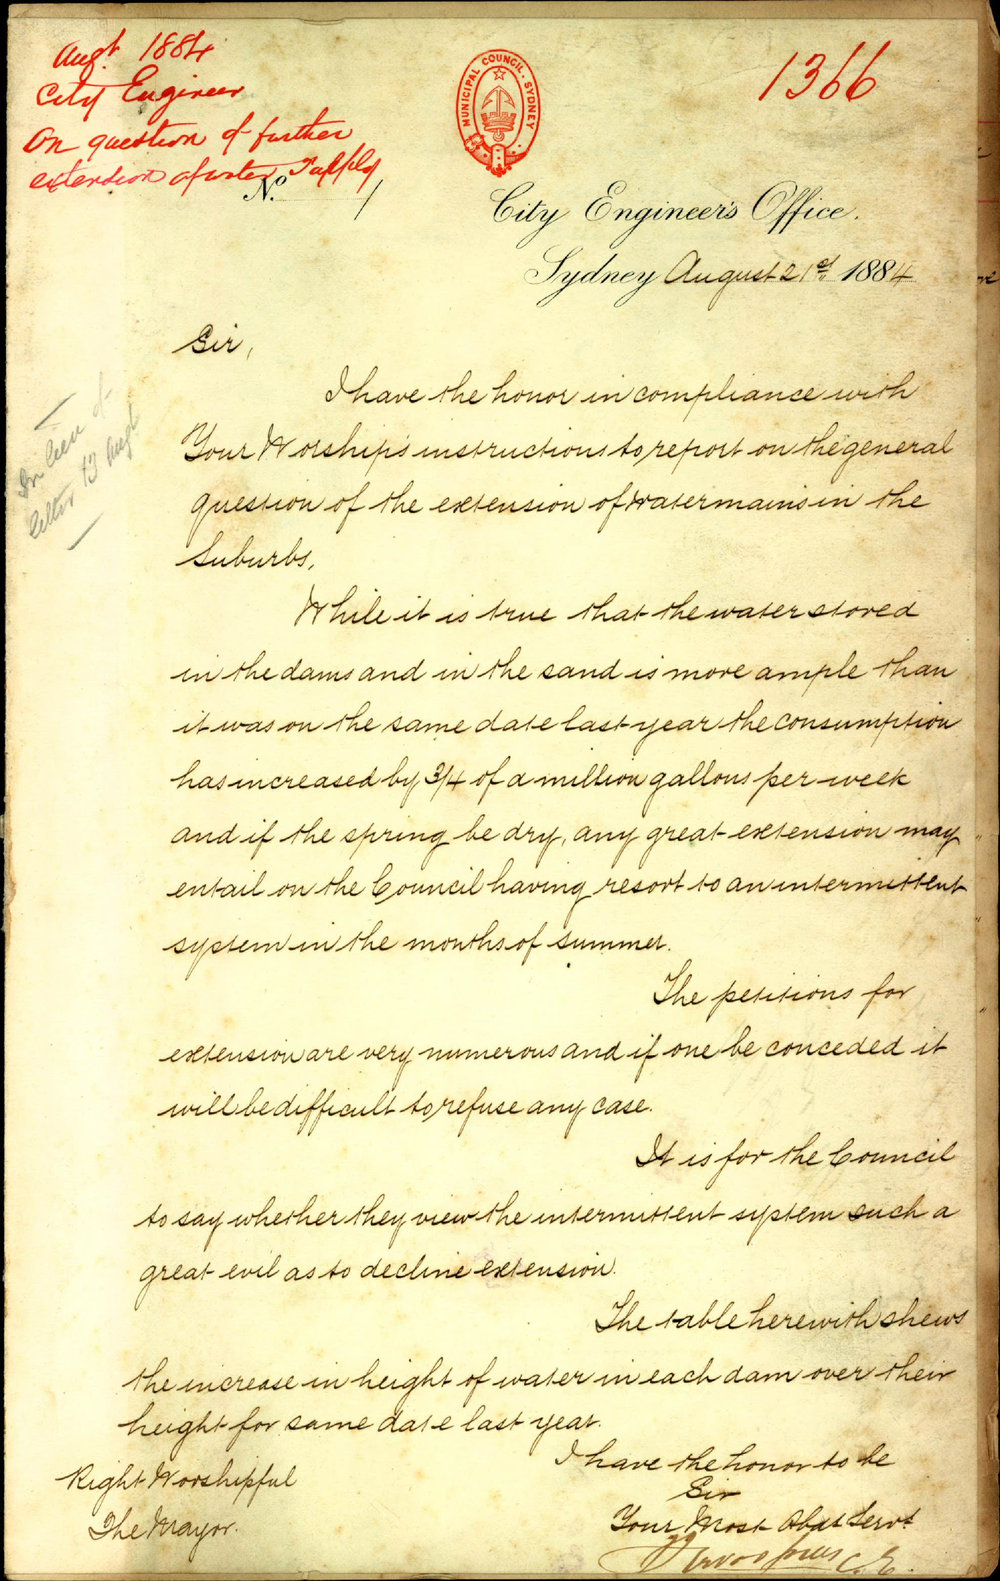 Augt 1884
City Engineer
On question of further
extension of water Supply
1366
MUNICIPAL COUNCIL · SYDNEY
No.
City Engineer's Office.
Sydney August 21st 1884
Sir,
In lieu of
letter 13 Augt
I have the honor in compliance with
Your Worship's instructions to report on the general
question of the extension of Watermains in the
Suburbs.
While it is true that the water stored
in the dams and in the sand is more ample than
it was on the same date last year the consumption
has increased by 3/4 of a million gallons per week
and if the spring be dry, any great extension may
entail on the Council having resort to an intermittent
system in the months of summer.
The petitions for
extension are very numerous and if one be conceded it
will be difficult to refuse any case.
It is for the Council
to say whether they view the intermittent system such a
great evil as to decline extension.
The table herewith shews
the increase in height of water in each dam over their
height for same date last year.
I have the honor to be
Sir
Your Most Obdt Servt
C.E.
Right Worshipful
The Mayor.